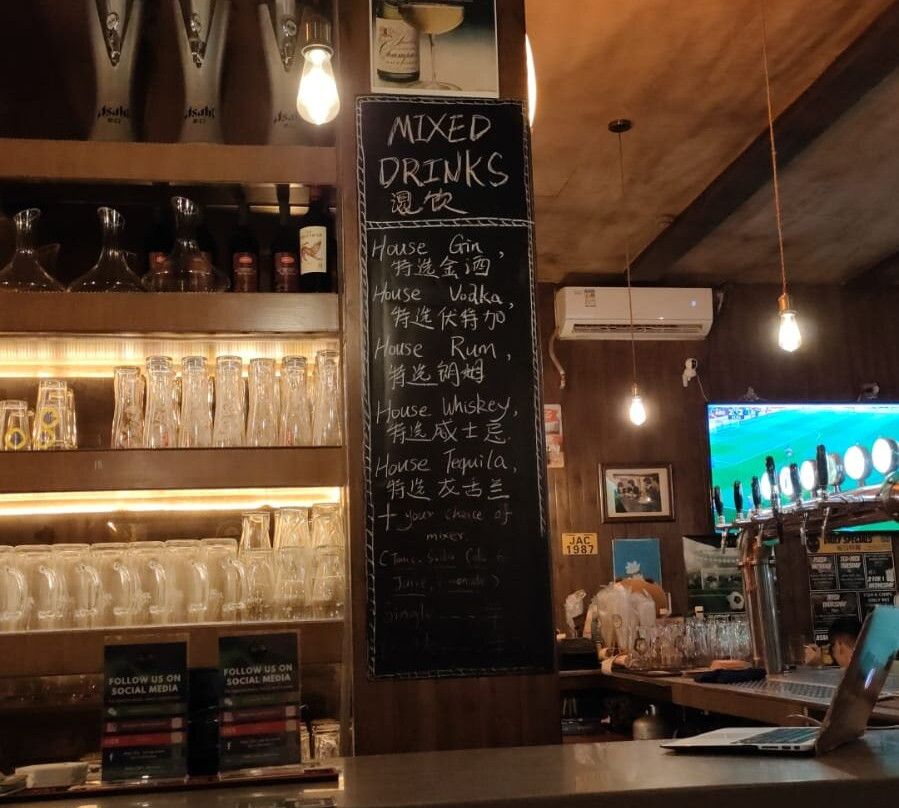 Champagne
Asahi
Asahi
Asahi
MIXED
DRINKS
混饮
House Gin,
特选金酒
House Vodka,
特选伏特加
House Rum,
特选朗姆
House Whiskey,
特选威士忌
House Tequila,
特选龙舌兰
+ your choice of
mixer
Juice, Lemonade )
Single
JAC
1987
FOLLOW US ON
SOCIAL MEDIA
FOLLOW US ON
SOCIAL MEDIA